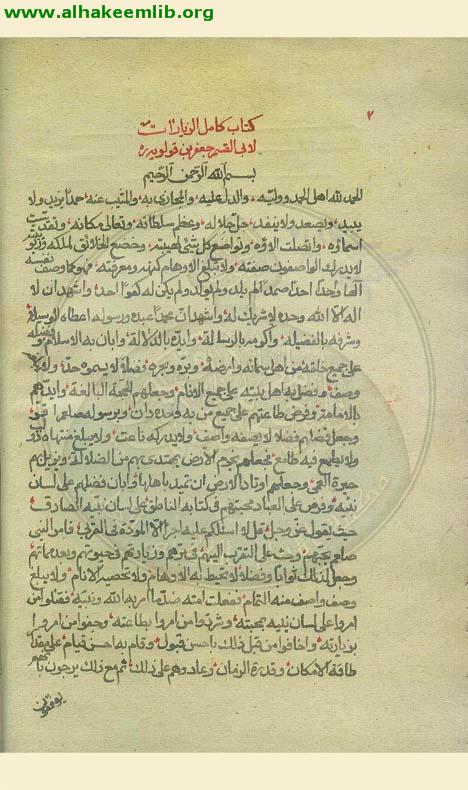 www.alhakeemlib.org
٢
كتاب كامل الزيارات
لابى القسم جعفر بن قولويه ره
بسم الله الرحمن الرحيم
الحمد لله اهل الحمد ووليه والدال عليه والمجازى به والمثيب عنه حمدا يزيد ولا
يبيد ويصعد ولا ينفد جل جلاله وعظم سلطانه وتعالى مكانه وتقدست
اسماؤه واتصلت الاؤه وتواضع كل شئ لهيبته وخضع الخلائق لملكه وربوبيته
لا يدرك الواصفون صفته ولا تبلغ الاوهام كنه معرفته فهو كما وصف نفسه
الها واحدا احدا صمدا لم يلد ولم يولد ولم يكن له كفوا احد واشهد ان لا
اله الا الله وحده لا شريك له واشهد ان محمدا عبده ورسوله اعطاه الوسيلة
وشرفه بالفضيله واكرمه بالرسالة وايده بالدلالة وابان به الاسلام وفضله
على جميع خلقه من اهل سمائه وارضه وبره وبحره فضلا لا يسمو حدا ولا
وصف وفضل به اهل بيته على جميع الانام وجعلهم الحجة البالغة وايدهم
بالامامة وفرض طاعتهم على جميع من به وحده دان وبرسوله
وجعل فضلهم فضلا لا يصفه واصف ولا يدركه ناعت ولا يبلغ منتهاه ذو
ولا يطمع فيه طامع فجعلهم نجوم الارض يهتدى بهم من الضلالة
حيرة العمى وجعلهم اوتاد الارض ان تميد باهلها وابان فضلهم على لسان
نبيه وفرض على العباد محبتهم فى كتابه الناطق على لسان نبيه الصادق
حيث يقول عز وجل قل لا اسئلكم عليه اجرا الا المودة فى القربى فامر النبى
صلعم بحبهم وحث على التقرب اليهم فى برهم وزيارتهم فى حيوتهم وبعد مماتهم
وجعل لذلك ثوابا وفضلا لا تحيط به الاوهام ولا تحصيه الانام ولا يبلغ
وصف واصف منه التمام ففعلت امته ضد ما امر به الله ونبيه فقتلوا من
امروا على لسان نبيه بمحبته وشردوا من امروا بطاعته وجفوا من امروا
بزيارته واخافوا من قبل ذلك باحسن قبول وقام به احسن قيام على
طاقة الامكان وقدرة الزمان وعادوهم على ذلك ثم مع ذلك يرجون